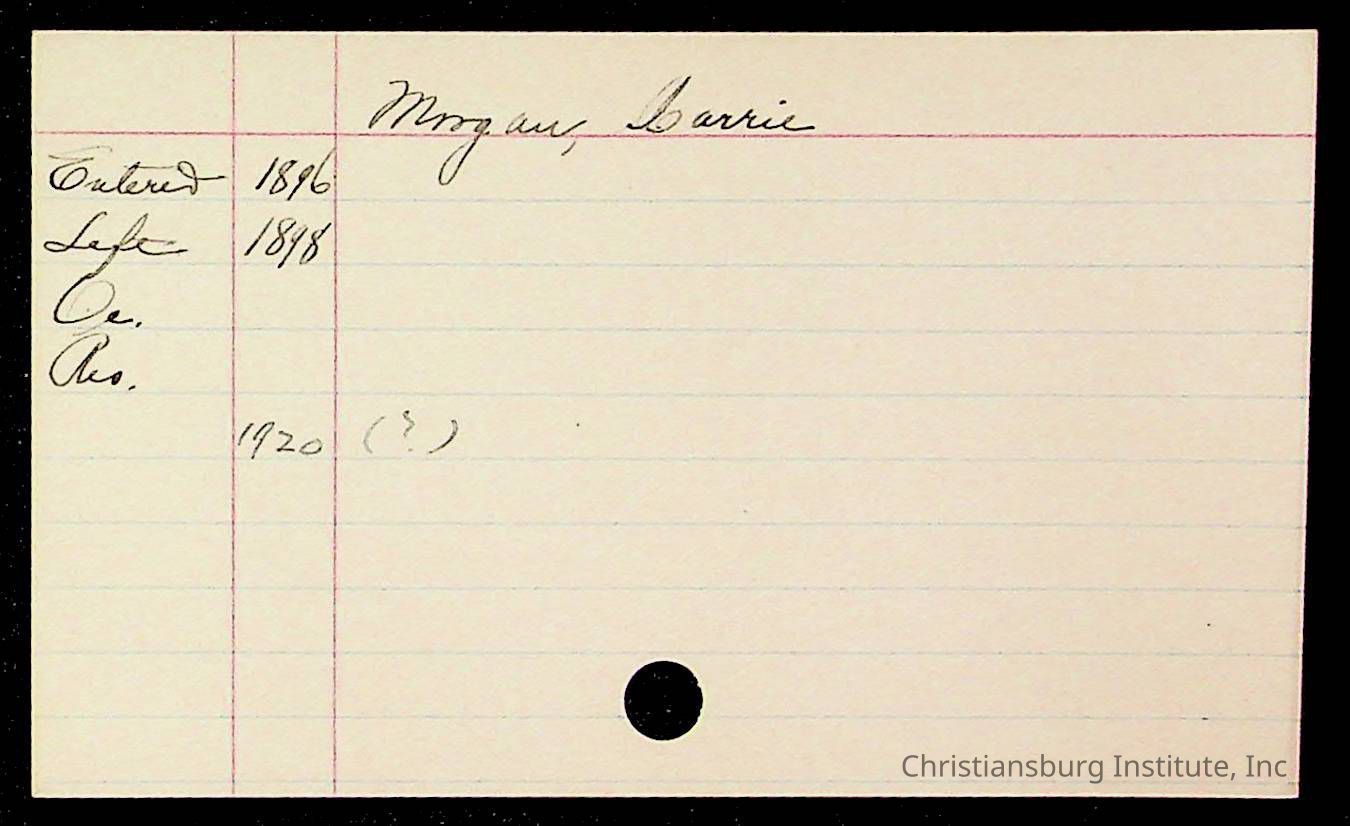 Morgan, Carrie
Entered 1896
Left 1898
Oc.
Res.
1920 (?)
Christiansburg Institute, Inc